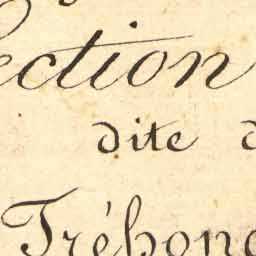 ection
dite d
Trébono